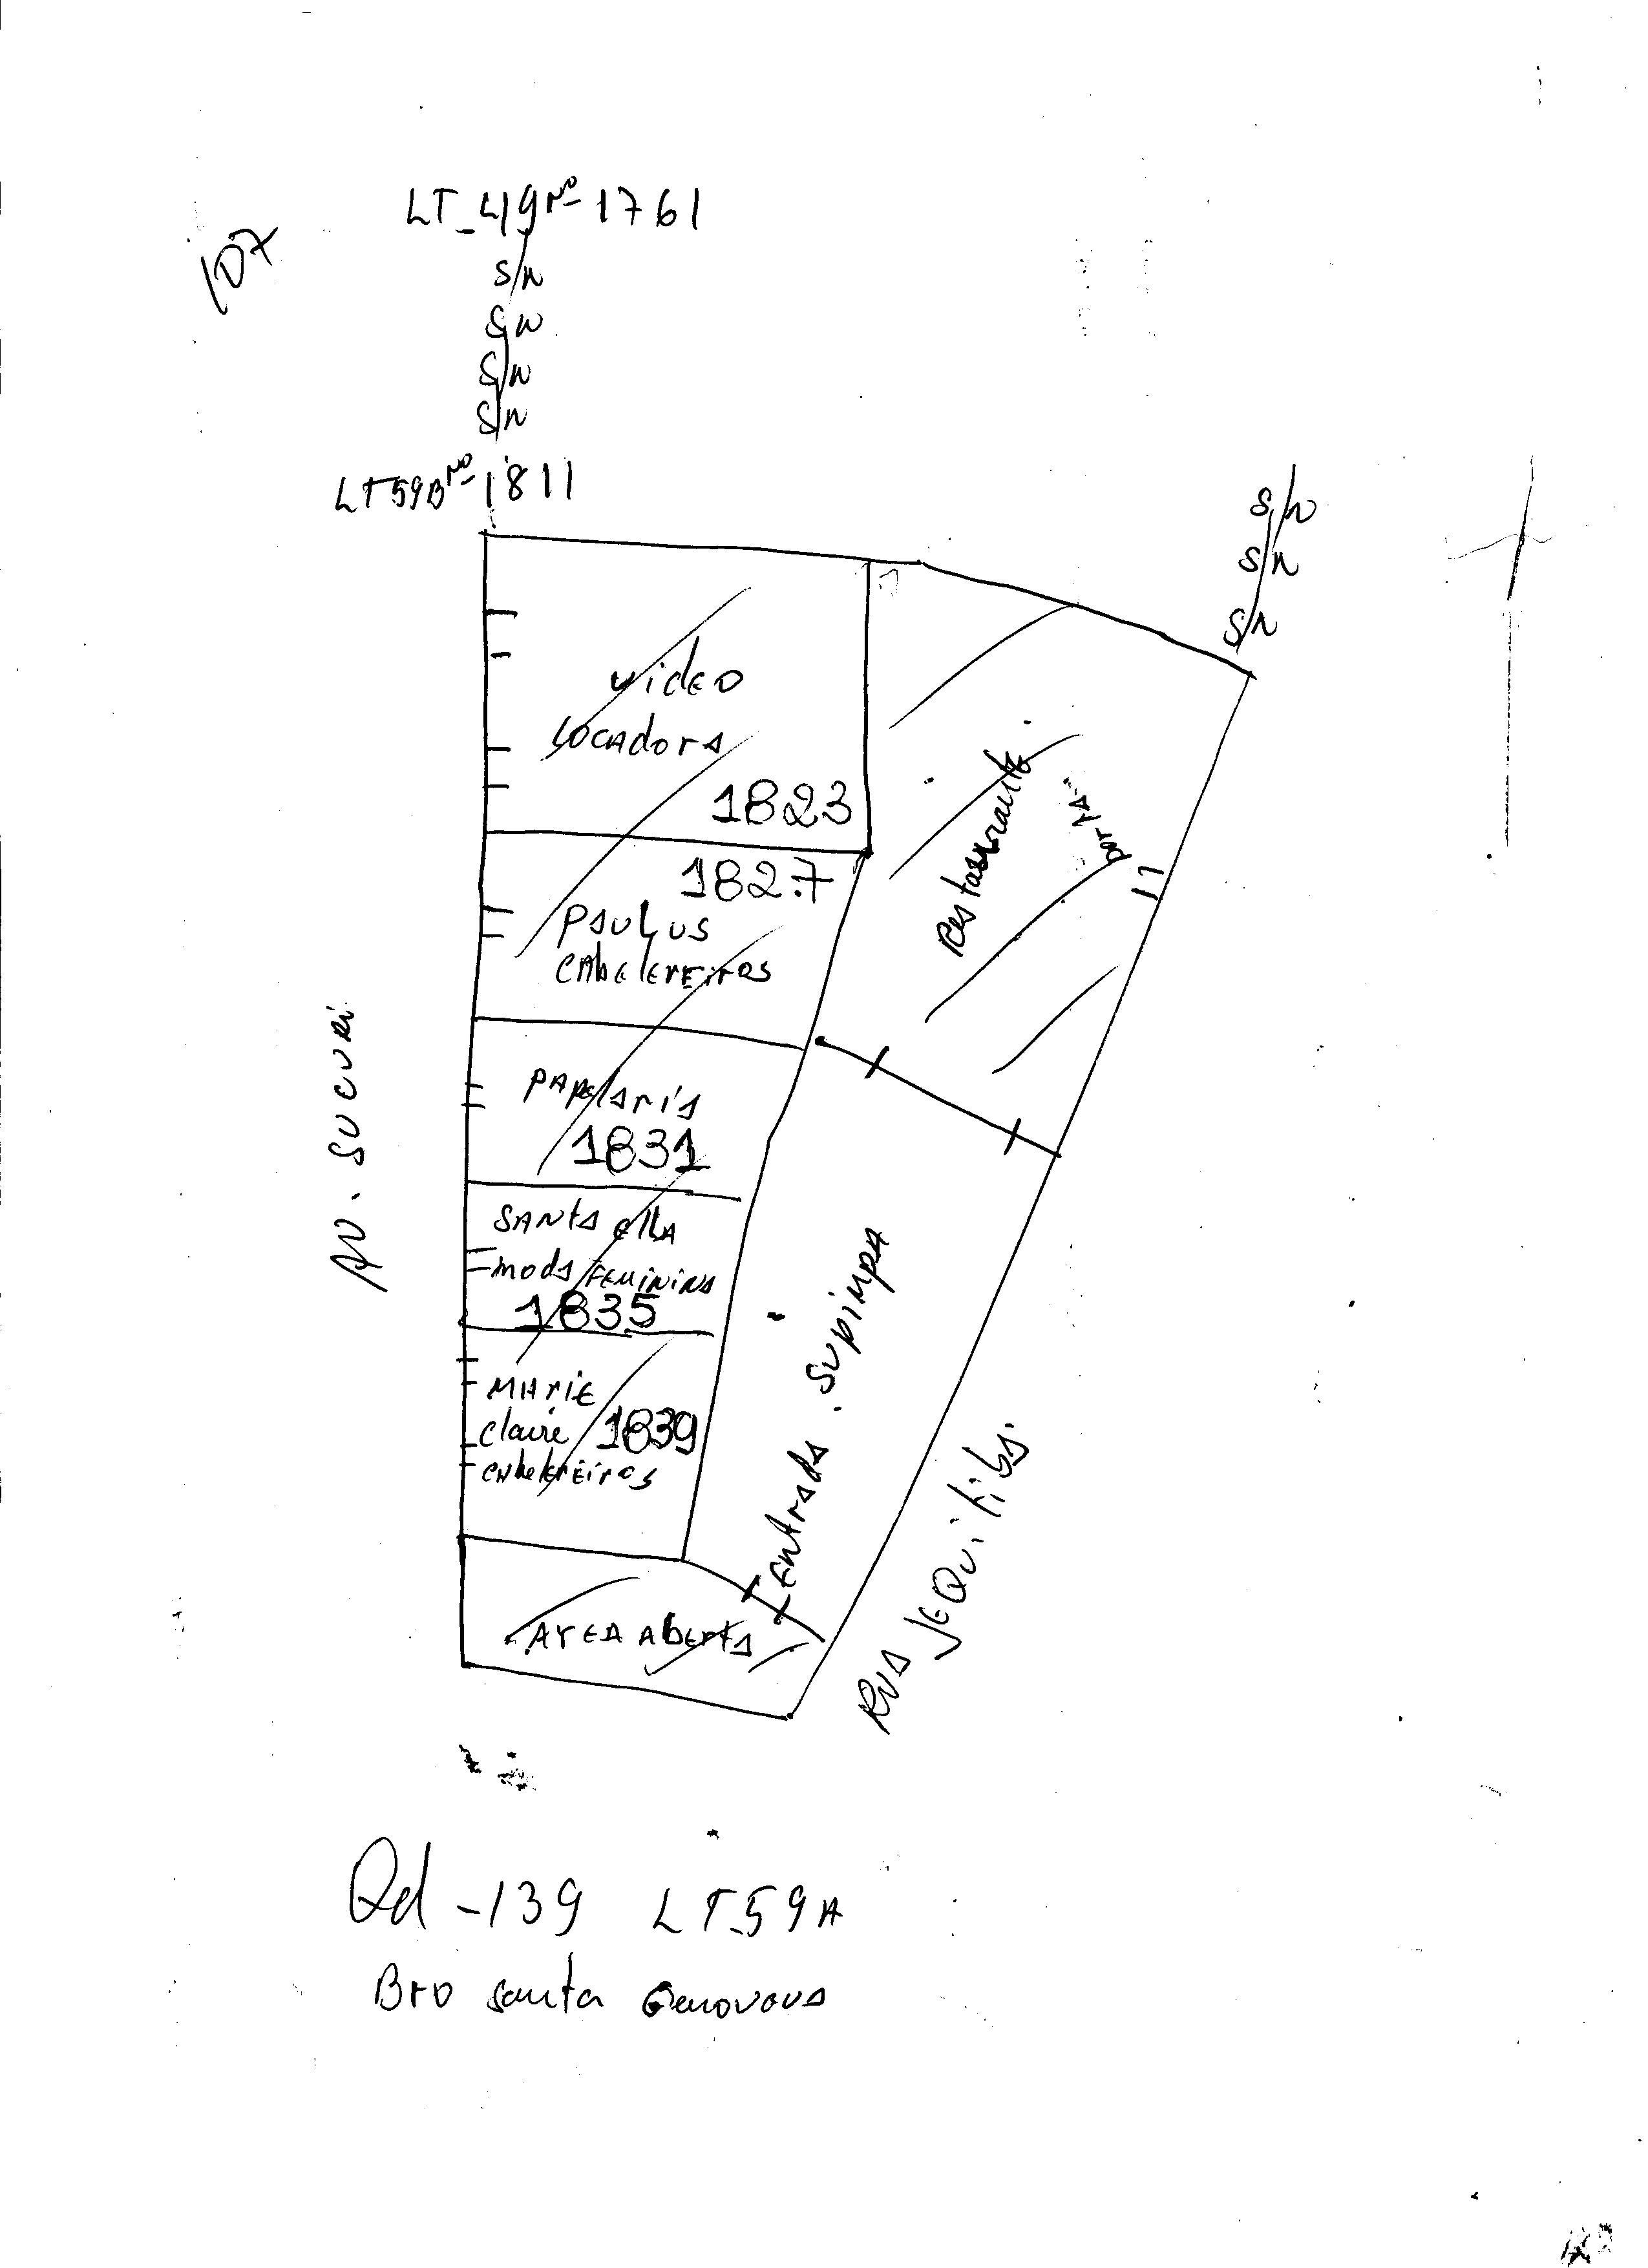 LT_49 Nº 1761
107
S/N
S/N
S/N
S/N
LT59B Nº 1811
S/N
S/N
S/N
video
locadora
1823
1827
Paulus
cabelereiros
Restaurante
porta
Papelaria
1831
Santa ella
moda feminina
1835
Marie
claire 1839
cabelereiros
Entrada. Supimpa
Area Aberta
AV. SUCURI
Rua Jequitiba
Qd-139 LT.59A
Bro santa Genoveva